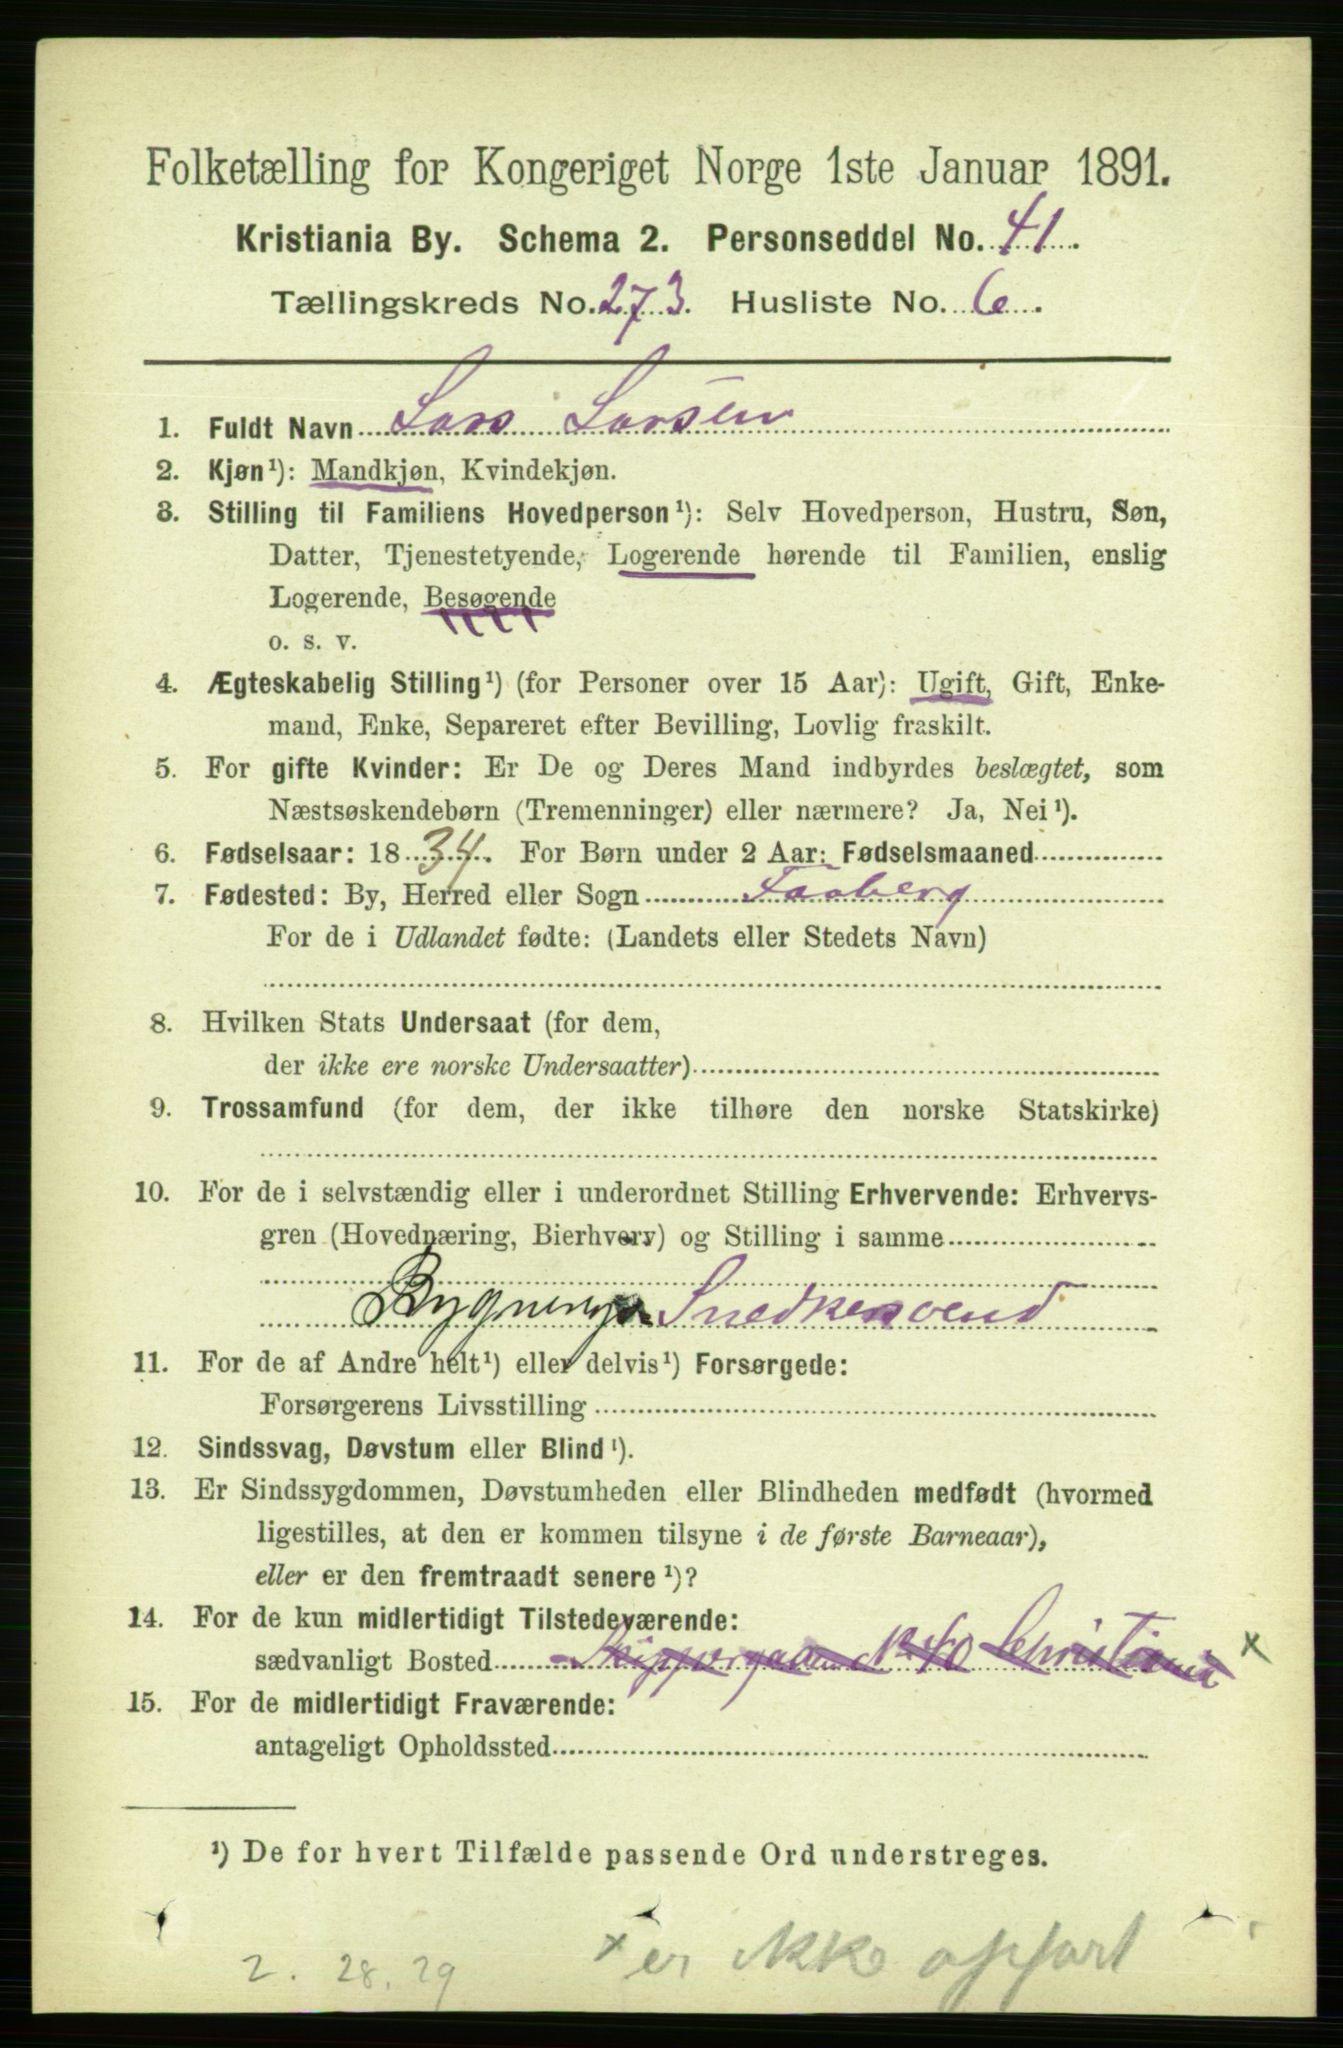 Folketælling for Kongeriget Norge 1ste Januar 1891.
Kristiania By. Schema 2. Personseddel No. 41.
Tællingskreds No. 273. Husliste No. 6.
1. Fuldt Navn Lars Larsen
2. Kjøn¹): Mandkjøn, Kvindekjøn.
3. Stilling til Familiens Hovedperson¹): Selv Hovedperson, Hustru, Søn,
Datter, Tjenestetyende, Logerende hørende til Familien, enslig
Logerende, Besøgende
o. s. v.
4. Ægteskabelig Stilling¹) (for Personer over 15 Aar): Ugift, Gift, Enke-
mand, Enke, Separeret efter Bevilling, Lovlig fraskilt.
5. For gifte Kvinder: Er De og Deres Mand indbyrdes beslægtet, som
Næstsøskendebørn (Tremenninger) eller nærmere? Ja, Nei¹).
6. Fødselsaar: 1834. For Børn under 2 Aar: Fødselsmaaned
7. Fødested: By, Herred eller Sogn Faaberg
For de i Udlandet fødte: (Landets eller Stedets Navn)
8. Hvilken Stats Undersaat (for dem,
der ikke ere norske Undersaatter)
9. Trossamfund (for dem, der ikke tilhøre den norske Statskirke)
10. For de i selvstændig eller i underordnet Stilling Erhvervende: Erhvervs-
gren (Hovednæring, Bierhverv) og Stilling i samme
Bygnings Snedkersvend
11. For de af Andre helt¹) eller delvis¹) Forsørgede:
Forsørgerens Livsstilling
12. Sindssvag, Døvstum eller Blind¹).
13. Er Sindssygdommen, Døvstumheden eller Blindheden medfødt (hvormed
ligestilles, at den er kommen tilsyne i de første Barneaar),
eller er den fremtraadt senere¹)?
14. For de kun midlertidigt Tilstedeværende:
sædvanligt Bosted Skippergaden No 40 Christiania x
15. For de midlertidigt Fraværende:
antageligt Opholdssted
¹) De for hvert Tilfælde passende Ord understreges.
x er ikke opført
2. 28. 29